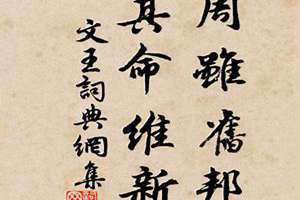 周雖舊邦
其命維新
文王詞典網集